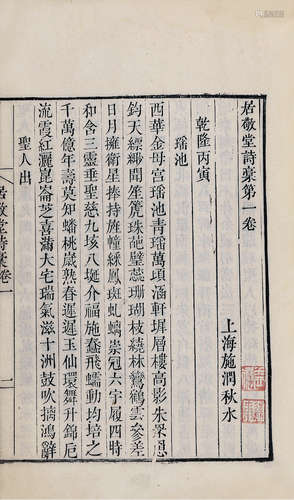 居敬堂詩稾第一卷
上海施潤秋水
乾隆丙寅
瑤池
西華金母宮瑤池青瑤萬頃涵軒墀層樓高影朱景
鈞天縹緲間笙箎珠葩璧蕊珊瑚枝繞林鸞鶴雲參差
日月擁衛星捧持旌幢綵鳳斑虬螭崇冠六宇履四時
和含三靈垂聖慈九垓八埏介福施蠢飛蠕動均培之
千萬億年壽莫知蟠桃歲熟春遲遲玉仙環舞升錦卮
流霞紅灑崑崙芝喜滿大宅瑞氣滋十洲鼓吹摛鴻辭
聖人出
居敬堂詩稾卷一
一